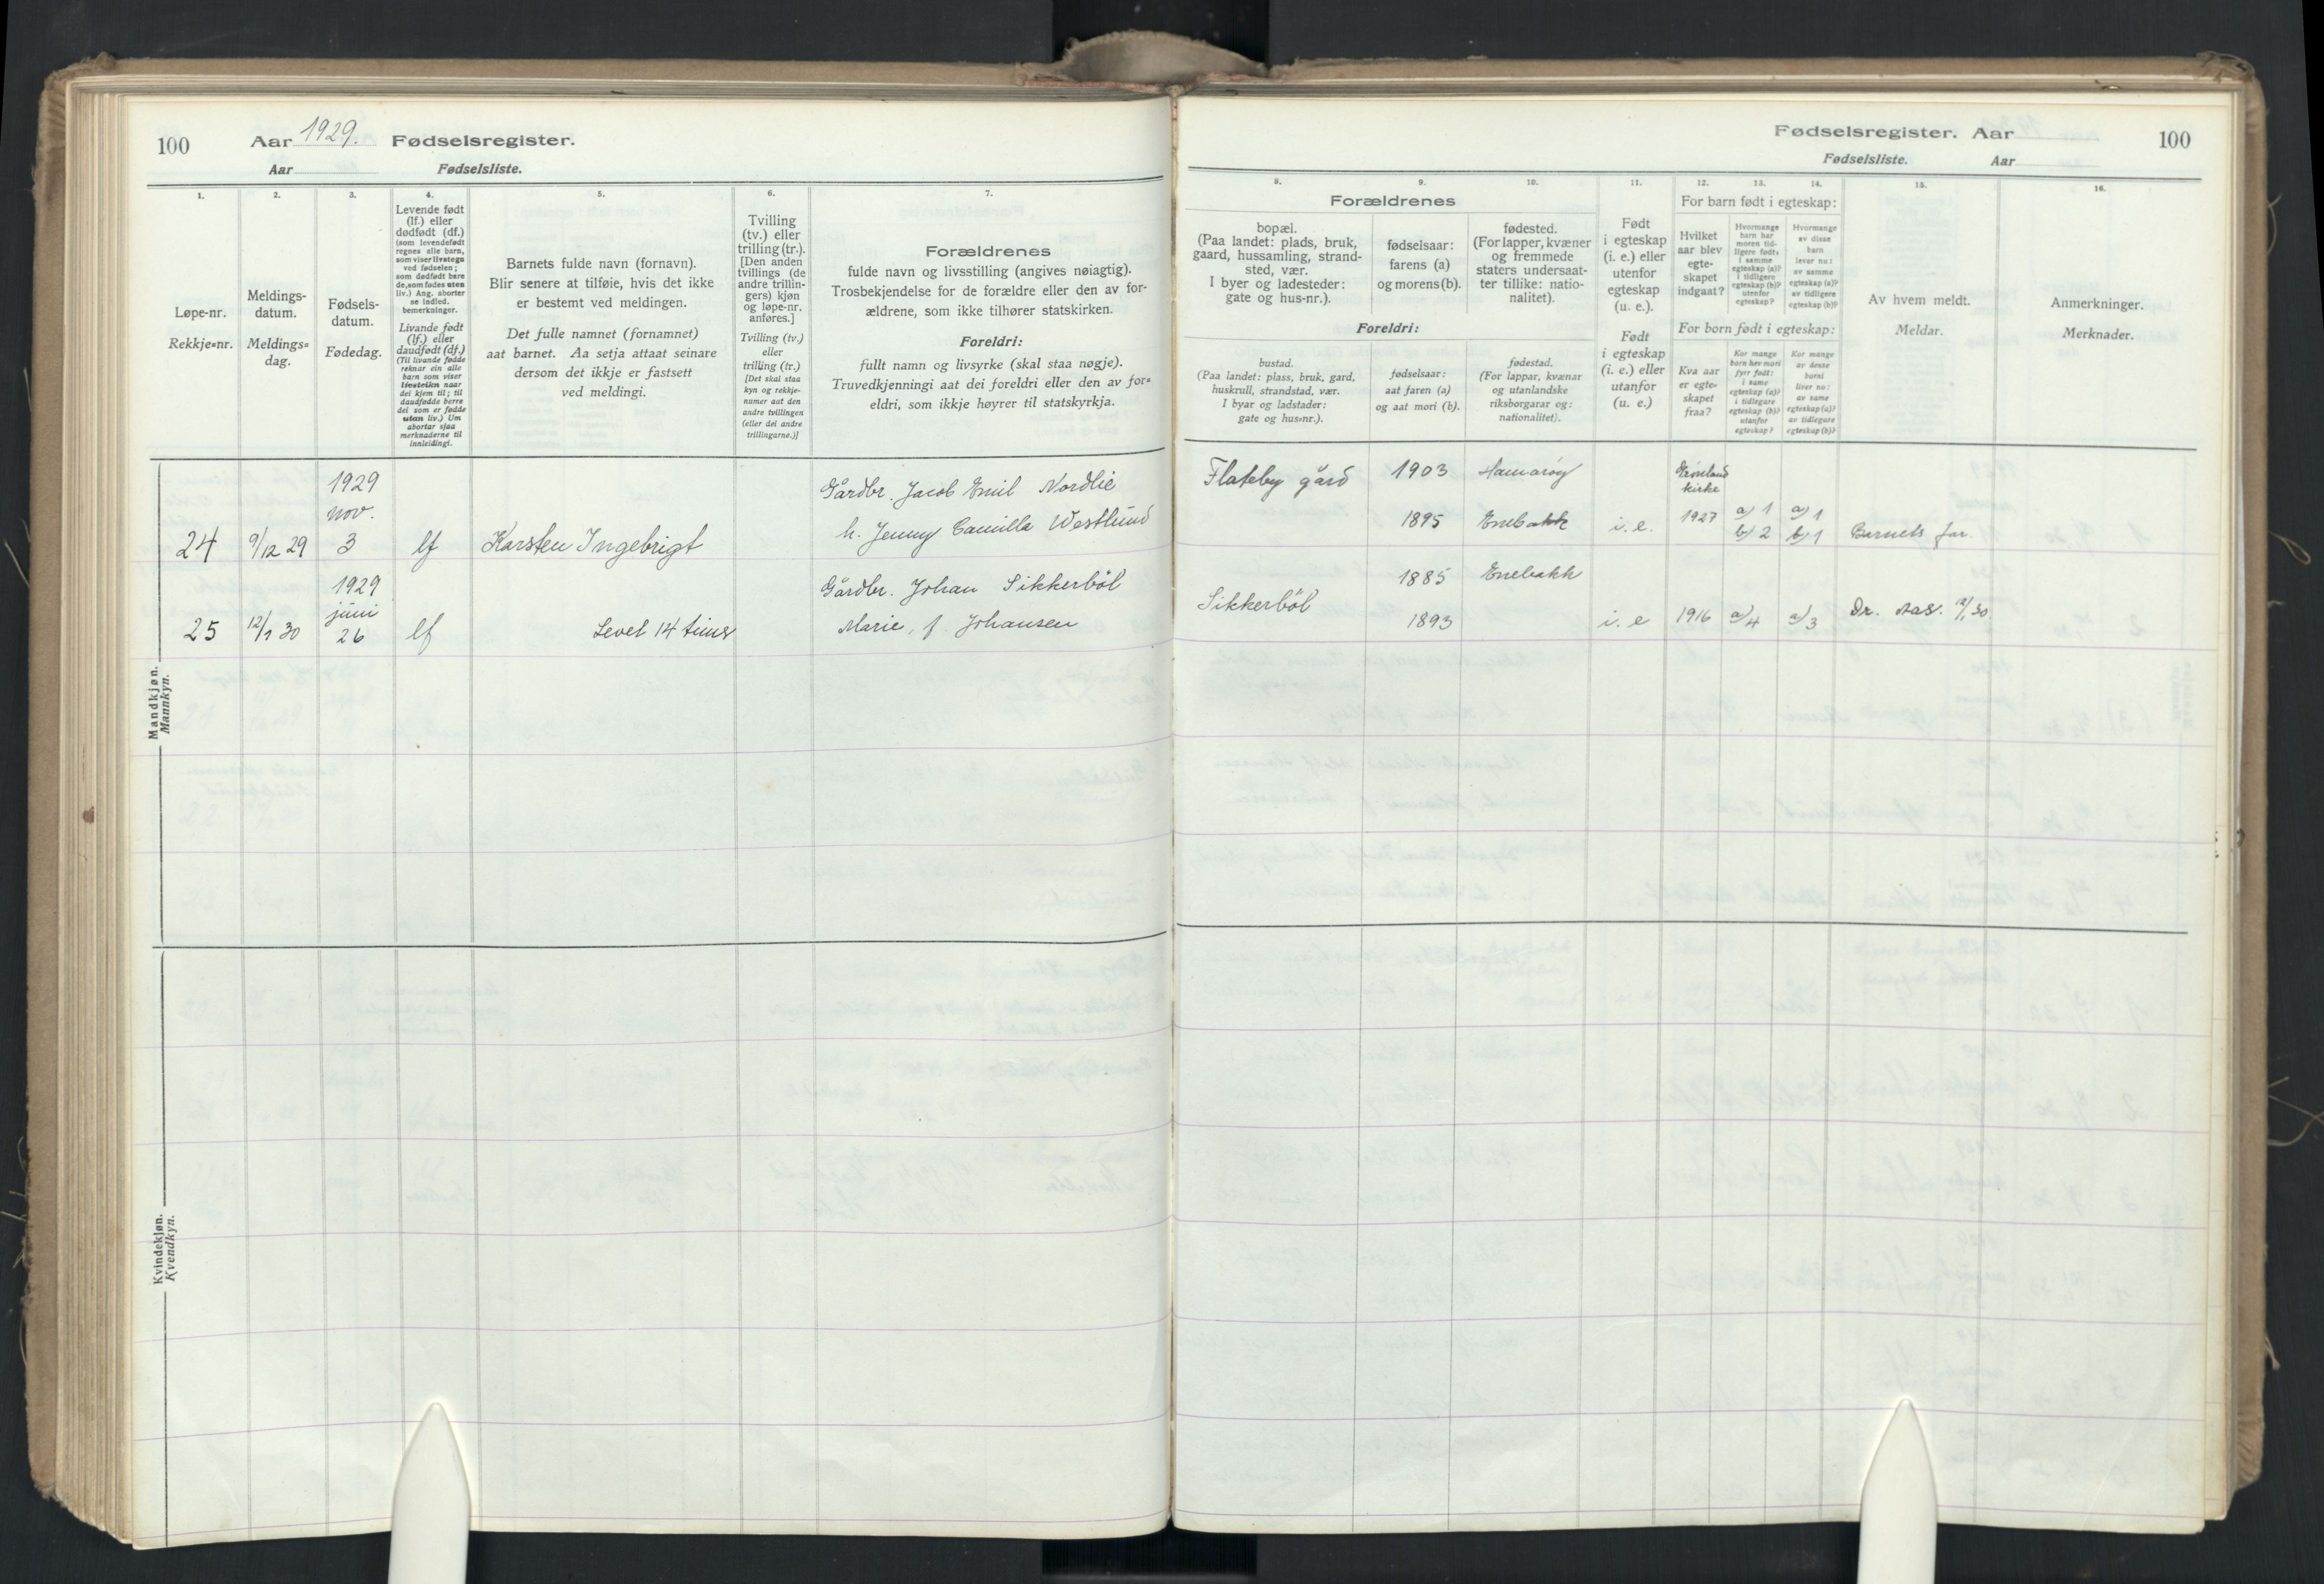 100
Aar 1929. Fødselsregister.
Aar Fødselsliste.
1.
2.
3.
4.
5.
6.
7.
Løpe-nr.
Rekkje=nr.
Meldings-
datum.
Meldings=
dag.
Fødsels-
datum.
Fødedag.
Levende født
(lf.) eller
dødfødt (df.)
(som levendefødt
regnes alle barn,
som viser livstegn
ved fødselen;
som dødfødt bare
de, som fødes uten
liv.) Ang. aborter
se indled.
bemerkninger.
Livande født
(lf.) eller
daudfødt (df.)
(Til livande fødde
reknar ein alle
barn som viser
livsteikn naar
dei kjem til; til
daudfødde berre
dei som er fødde
utan liv.) Um
abortar sjaa
merknaderne til
innleidingi.
Barnets fulde navn (fornavn).
Blir senere at tilføie, hvis det ikke
er bestemt ved meldingen.
Det fulle namnet (fornamnet)
aat barnet. Aa setja attaat seinare
dersom det ikkje er fastsett
ved meldingi.
Tvilling
(tv.) eller
trilling (tr.).
[Den anden
tvillings (de
andre trillin-
gers) kjøn
og løpe-nr.
anføres.]
Tvilling (tv.)
eller
trilling (tr.)
[Det skal staa
kyn og rekkje-
numer aat den
andre tvillingen
(eller dei andre
trillingarne.)]
Forældrenes
fulde navn og livsstilling (angives nøiagtig).
Trosbekjendelse for de forældre eller den av for-
ældrene, som ikke tilhører statskirken.
Foreldri:
fullt namn og livsyrke (skal staa nøgje).
Truvedkjenningi aat dei foreldri eller den av for=
eldri, som ikkje høyrer til statskyrkja.
Mandkjøn.
Mannkyn.
24
9/12 29
1929
nov.
3
lf
Karsten Ingebrigt
Gårdbr. Jacob Emil Nordlie
h. Jenny Camilla Westlund
25
12/1 30
1929
juni
26
lf
Levet 14 timer
Gårdbr. Johan Sikkerböl
Marie, f. Johansen
Kvindekjøn.
Kvendkyn.
Fødselsregister. Aar
100
Fødselsliste. Aar
8.
9.
10.
11.
12.
13.
14.
15.
16.
Forældrenes
bopæl.
(Paa landet: plads, bruk,
gaard, hussamling, strand-
sted, vær.
I byer og ladesteder:
gate og hus-nr.).
fødselsaar:
farens (a)
og morens (b).
fødested.
(For lapper, kvæner
og fremmede
staters undersaat-
ter tillike: natio-
nalitet).
Foreldri:
bustad.
(Paa landet: plass, bruk, gard,
huskrull, strandstad, vær.
I byar og ladstader:
gate og hus=nr.).
fødselsaar:
aat faren (a)
og aat mori (b).
fødestad.
(For lappar, kvænar
og utanlandske
riksborgarar og:
nationalitet).
Født
i egteskap
(i. e.) eller
utenfor
egteskap
(u. e.).
Født
i egteskap
(i. e.) eller
utanfor
(u. e.).
For barn født i egteskap:
Hvilket
aar blev
egte-
skapet
indgaat?
Hvormange
barn har
moren tid-
ligere født:
i samme
egteskap (a)?
i tidligere
egteskap (b)?
utenfor
egteskap?
Hvormange
av disse
barn
lever nu:
av samme
egteskap (a)?
av tidligere
egteskap (b)?
For born født i egteskap:
Kva aar
er egte-
skapet
fraa?
Kor mange
born hev mori
fyrr født:
i same
egteskap (a)?
i tidlegare
egteskap (b)?
utanfor
egteskap?
Kor mange
av desse
borni
liver no:
av same
egteskap (a)?
av tidlegare
egteskap (b)?
Av hvem meldt.
Meldar.
Anmerkninger.
Merknader.
Flateby gård
1903
Hamarøy
1895
Enebakk
i. e.
Grønland
kirke
1927
a) 1
b) 2
a) 1
b) 1
Barnets far.
Sikkerböl
1885
Enebakk
1893
i. e
1916
a) 4
a) 3
Dr. Aas. 12/1 30.